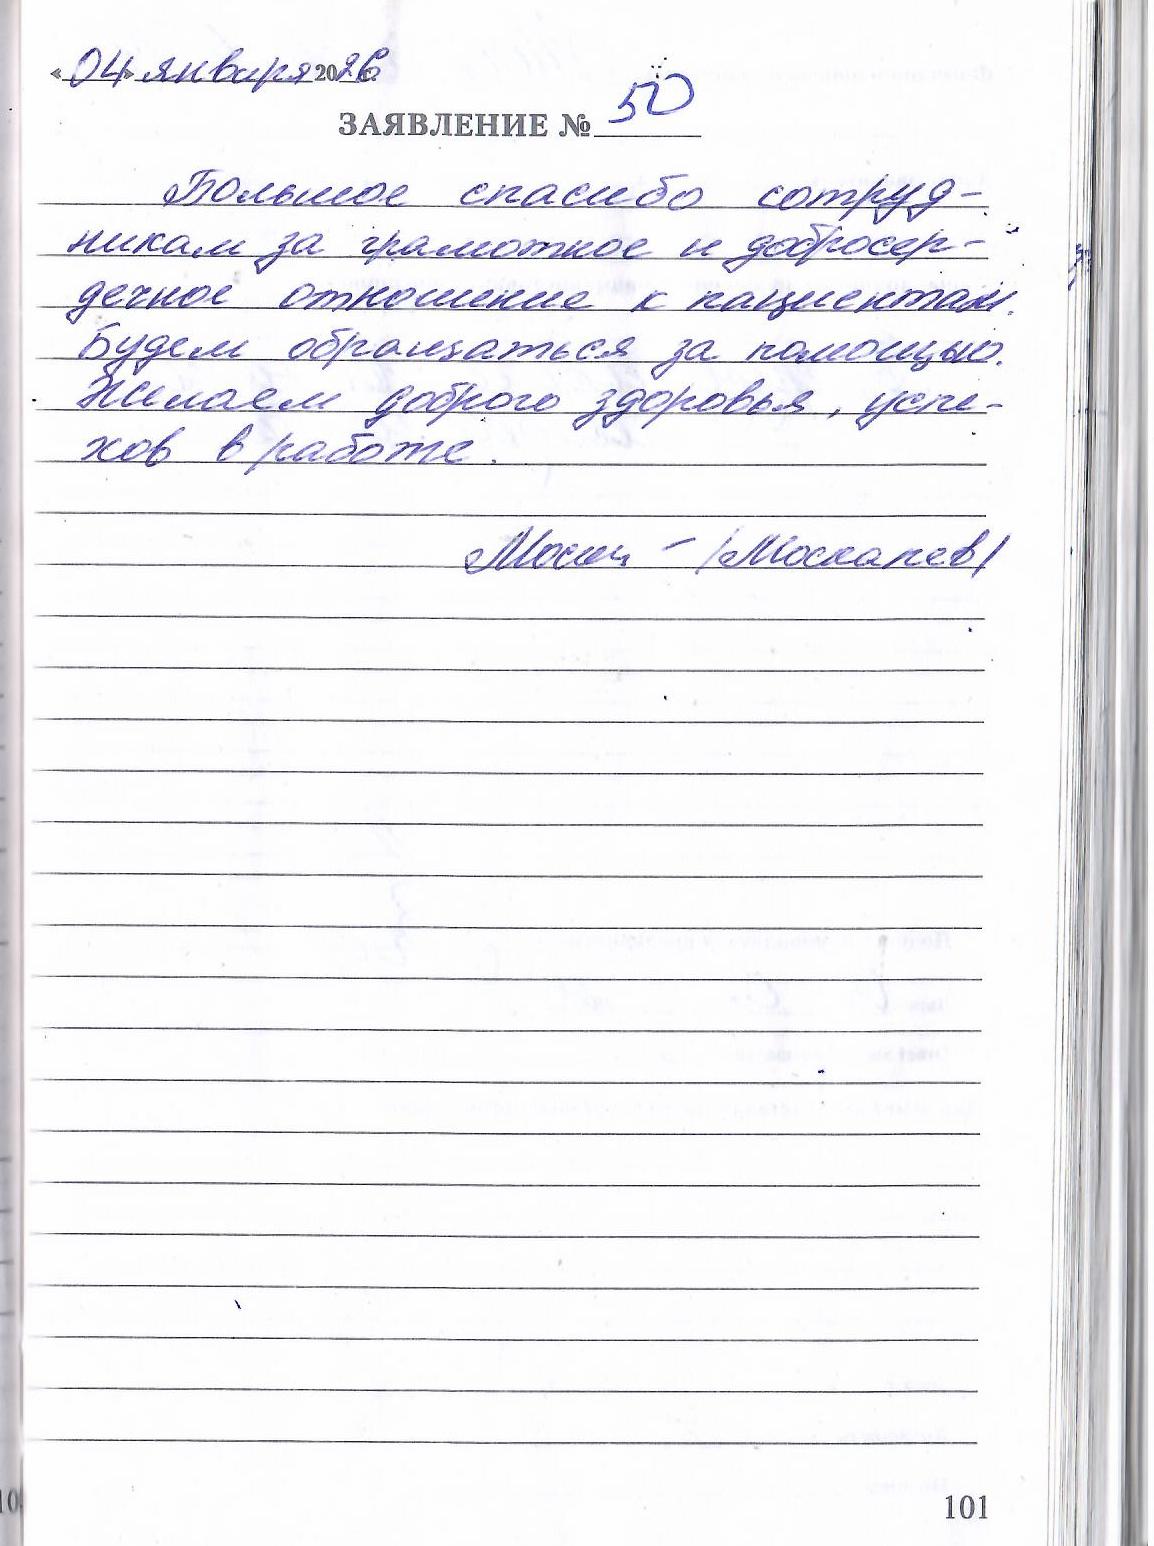 «04» января 2026
ЗАЯВЛЕНИЕ № 50
Большое спасибо сотруд-
никам за грамотное и добросер-
дечное отношение к пациентам.
Будем обращаться за помощью.
Желаем доброго здоровья, успе-
хов в работе.
/Москалев/
101